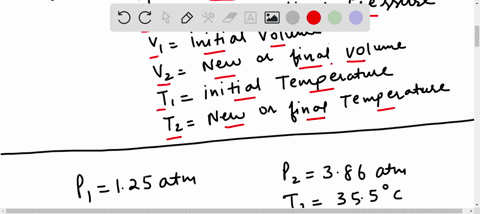 Pressure
V₁ = initial Volume
V₂ = New or final volume
T₁ = initial Temperature
T₂ = New or final Temperature
P₁ = 1.25 atm
P₂ = 3.86 atm
35.5°C